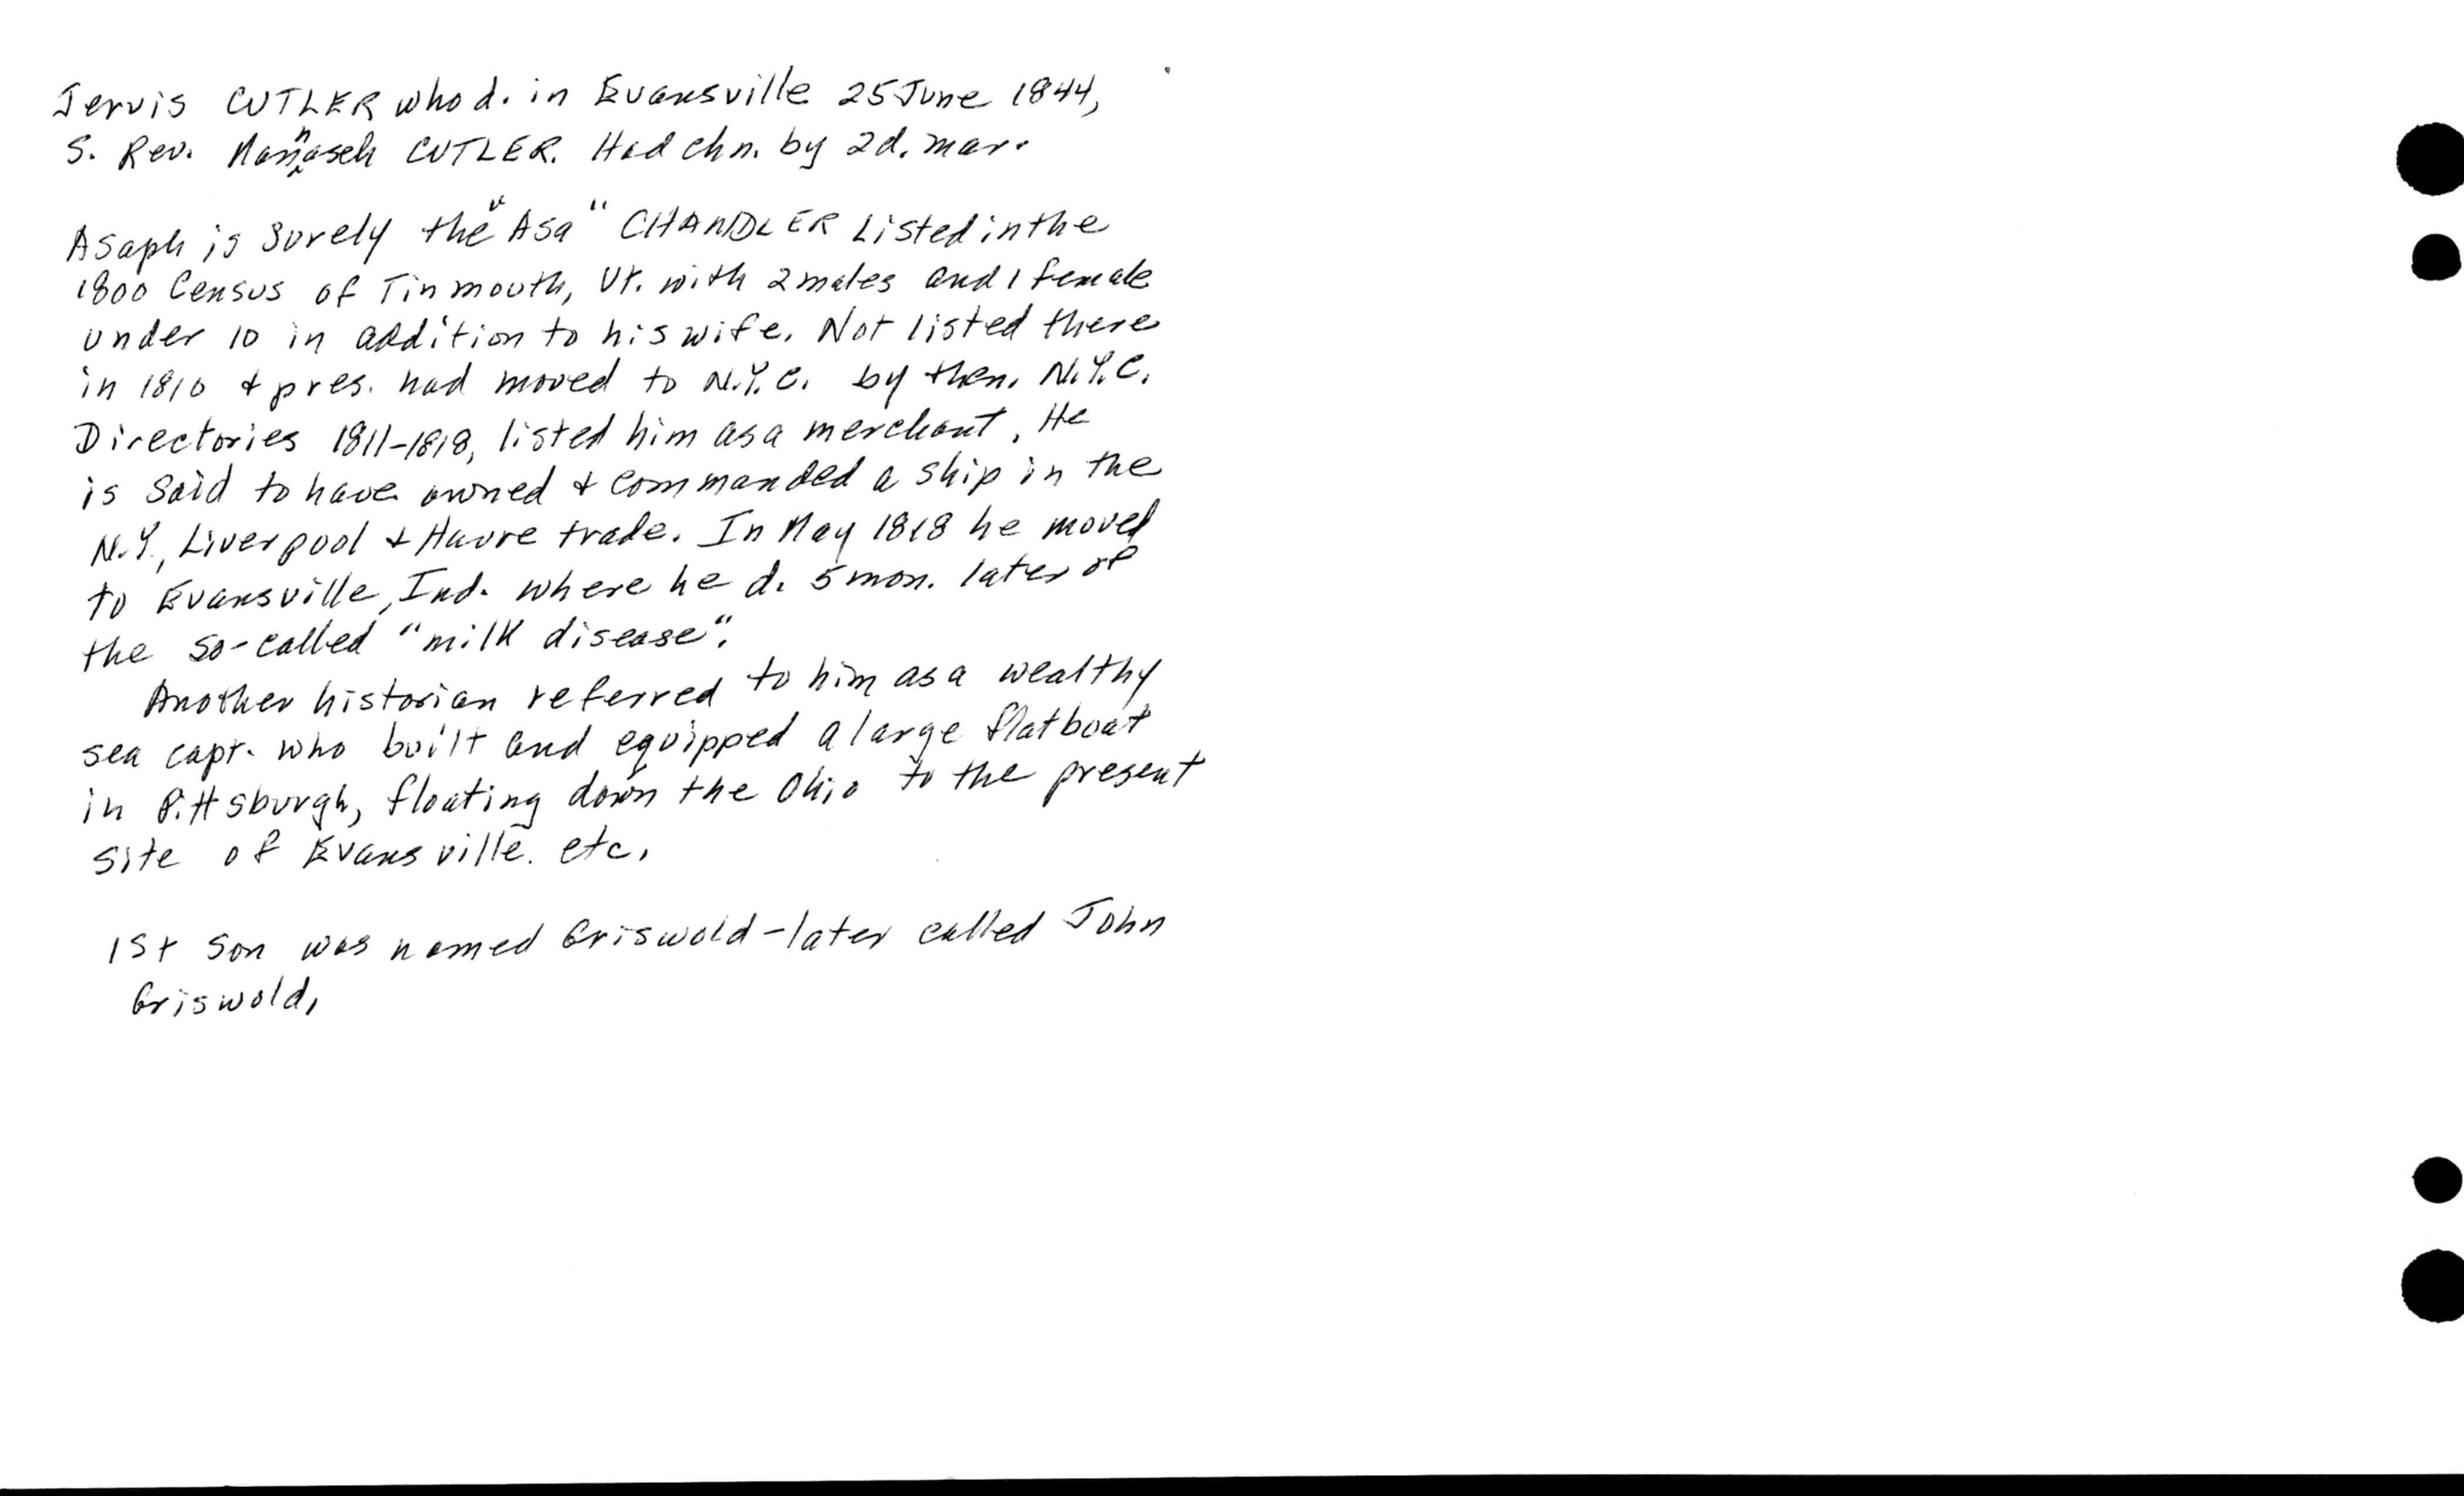 Jervis CUTLER who d. in Evansville 25 June 1844,
S. Rev. Mannaseh CUTLER. Had chn. by 2d. mar.
Asaph is surely the "Asa" CHANDLER Listed in the
1800 Census of Tinmouth, Vt. with 2 males and 1 female
under 10 in addition to his wife. Not listed there
in 1810 & pres. had moved to N.Y.C. by then. N.Y.C.
Directories 1811-1818, listed him as a merchant. He
is said to have owned & commanded a ship in the
N.Y., Liverpool & Havre trade. In May 1818 he moved
to Evansville, Ind. where he d. 5 mon. later of
the so-called "milk disease".
Another historian referred to him as a wealthy
sea capt. who built and equipped a large flatboat
in Pittsburgh, floating down the Ohio to the present
site of Evansville. etc.
1st son was named Griswold - later called John
Griswold.